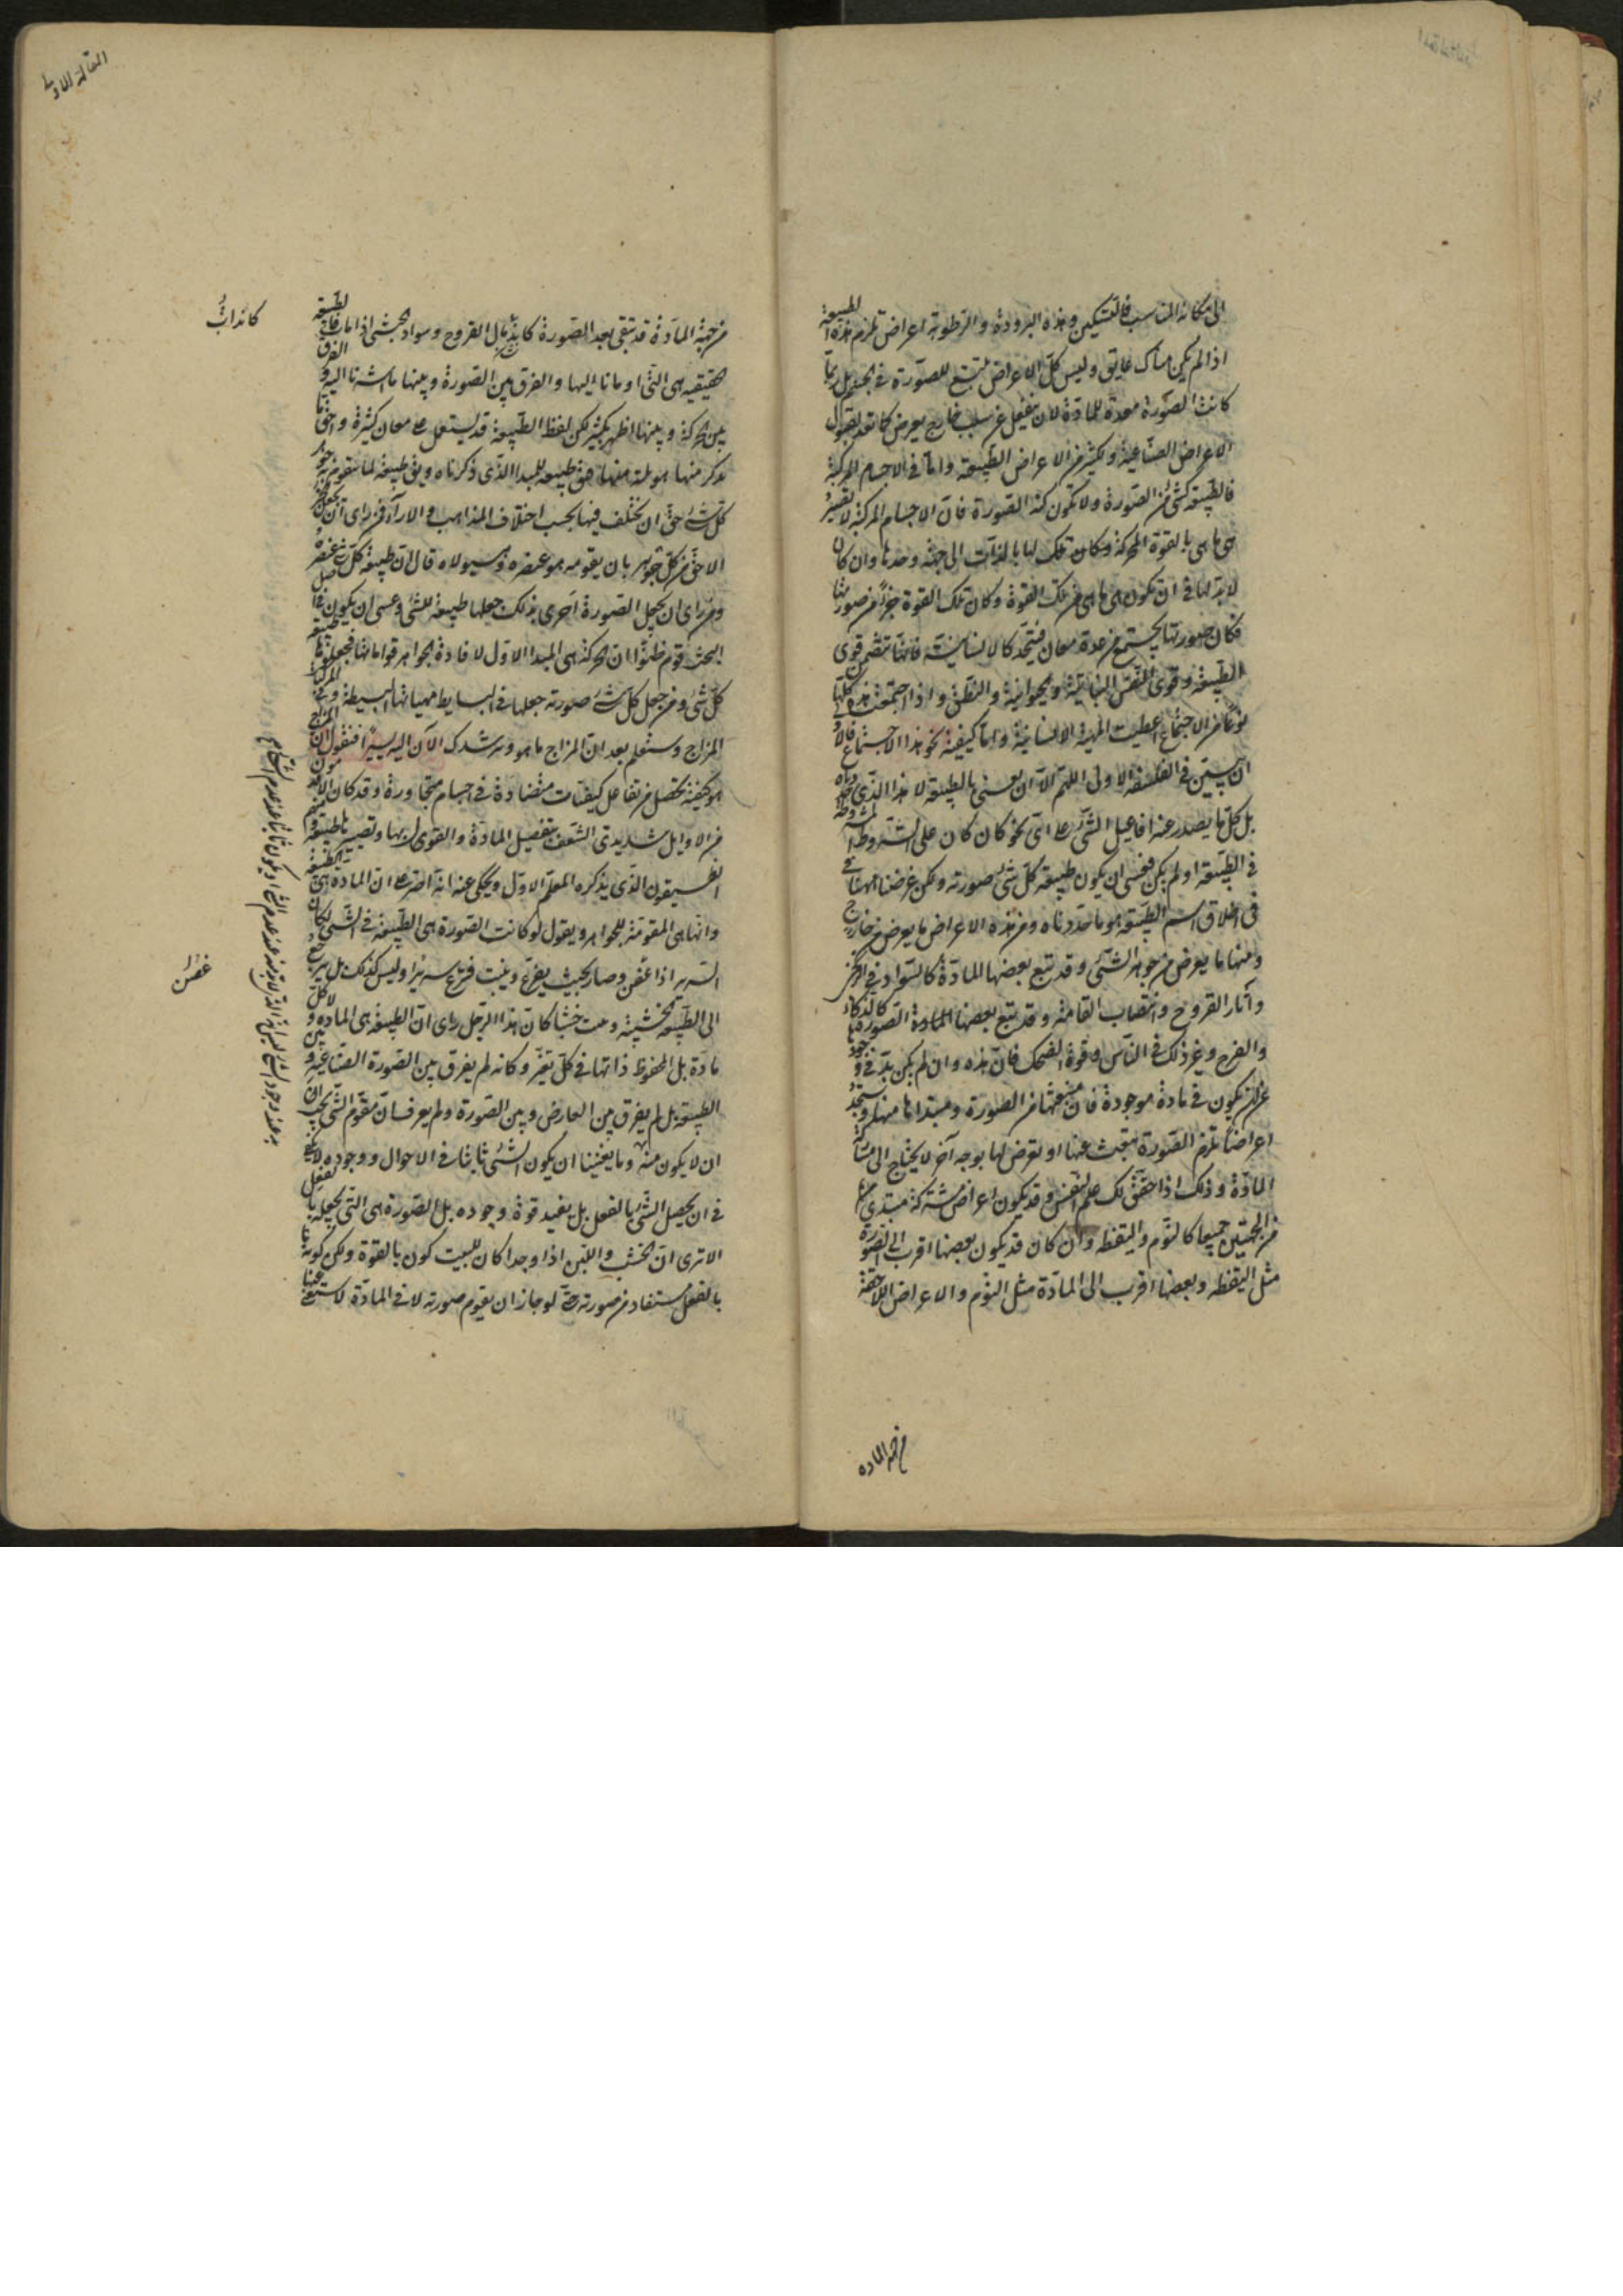 الى مكانه المناسب فالتسكين وهذه البرودة والرطوبة اعراض تلزم هذه الطبيعة
اذا لم يكن هناك عايق وليس كل الاعراض تتبع للصورة فى الجسم بل ربما
كانت الصورة معدة للمادة لان تنفعل عن سبب خارج يعرض كما تعد لقبول
الاعراض الصناعية ولكثير من الاعراض الطبيعة واما فى الاجسام المركبة
فالطبيعة كشئ من الصورة ولا تكون كنه الصورة فان الاجسام المركبة لا تصير
هى ما هى بالقوة المحركة وكان تلك لها بالذات الى جهة وحدها وان كان
لا بد لها فى ان تكون هى ما هى من تلك القوة وكان تلك القوة جزء من صورتها
فكان صورتها يجتمع من عدة معان فيتحد كالانسانية فانها تتضمن قوى
الطبيعة وقوى النفس النباتية والحيوانية والنطق واذا اجتمعت هذه كلها
نوعا من الاجتماع اعطيت المهية الانسانية واما كيفية نحو هذا الاجتماع فالاولى
ان يبين فى الفلسفة الاولى اللهم الا ان يعنى بالطبيعة لا هذا الذى حددناه
بل كل ما يصدر عنه افاعيل الشئ على اى نحو كان كان على الشروط المشروطة
فى الطبيعة او لم يكن فعسى ان يكون طبيعة كل شئ صورته ولكن غرضنا ههنا
فى اطلاق اسم الطبيعة هو ما حددناه ومن هذه الاعراض ما يعرض من خارج
ومنها ما يعرض من جوهر الشئ وقد تتبع بعضها المادة كالسواد فى الزنجى
وآثار القروح وانتصاب القامة وقد تتبع بعضها الصورة كالذكاء
والفرح وغير ذلك فى الناس وقوة الضحك فان هذه وان لم يكن بد فى وجودها
من ان يكون فى مادة موجودة فان منبعثها من الصورة ومبتداها منها وستجد
اعراضا تلزم الصورة تنبعث عنها او تعرض لها بوجه آخر لا يحتاج الى مشاركة
المادة وذلك اذا حقق لك علم النفس وقد يكون اعراض مشتركة مبتدئ
من الجهتين جميعا كالنوم واليقظه وان كان قد يكون بعضها اقرب الى الصورة
مثل اليقظه وبعضها اقرب الى المادة مثل النوم والاعراض اللاحقة
من جهة الماده
المقالة الاولى
من جهة المادة قد تبقى بعد الصورة كاندمال القروح وسواد الحبشى اذا مات فالطبيعة
الحقيقيه هى التى اومانا اليها والفرق بين الصورة وبينها ما اشرنا اليه والفرق
بين الحركة وبينها اظهر بكثير لكن لفظ الطبيعة قد يستعمل على معان كثيرة واحق ما
يذكر منها هو ثلثة منها فيق طبيعه للمبدا الذى ذكرناه ويق طبيعة لما يتقوم به جوهر
كل شئ حق ان تختلف فيها بحسب اختلاف المذاهب والاراء فمن راى ان
الاحق من كل جوهر بان يقومه هو عنصره وهيولاه قال ان طبيعة كل شئ عنصره
ومن راى ان يجعل الصورة احرى بذلك جعلها طبيعة للشئ وعسى ان يكون فى اصل
البحث قوم ظنوا ان الحركة هى المبدا الاول لافادة الجواهر قواماتها فجعلوها طبيعة
كل شئ ومن جعل كل شئ صورته جعلها فى البسايط مهياتها البسيطة وفى المركبات
المزاج وستعلم بعد ان المزاج ما هو ونرشدك الآن اليه يسيرا فنقول ان المزاج
هو كيفية تحصل من تفاعل كيفيات متضادة فى اجسام متجاورة وقد كان الاقدمون
من الاوايل شديدى الشعف بتفضيل المادة والقول بها وتصييرها طبيعة ومنهم
انطيفون الذى يذكره المعلم الاول ويحكى عنه انه اصر على ان المادة هى الطبيعة
وانها هى المقومة للجواهر ويقول لو كانت الصورة هى الطبيعة فى الشئ لكان
السرير اذا عفن وصار بحيث يفرع وينبت فرع سريرا وليس كذلك بل يرجع
الى الطبيعة الخشبية وينبت خشبا كان هذا الرجل راى ان الطبيعة هى الماده ولا كل
مادة بل المحفوظ ذاتها فى كل تغير وكانه لم يفرق بين الصورة الصناعية وبين
الطبيعة بل لم يفرق بين العارض وبين الصورة ولم يعرف ان مقوم الشئ يجب
ان لا يكون منه وما يغنينا ان يكون الشئ ثابتا فى الاحوال ووجوده لا يكفى
فى ان يحصل الشئ بالفعل بل يفيد قوة وجوده بل الصورة هى التى تجعله بالفعل
الا ترى ان الخشب واللبن اذا وجدا كان للبيت كون بالقوة ولكن كونه
بالفعل مستفاد من صورته حتى لو جاز ان يقوم صورته لا فى المادة لاستغنى عنها
كاندابُ
غصن